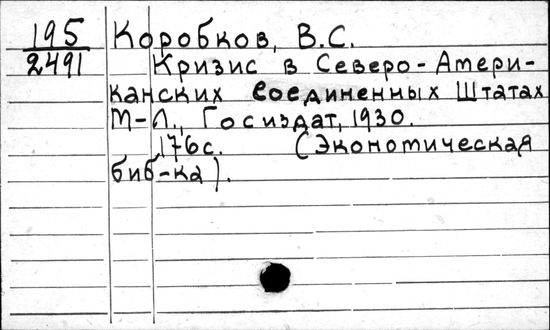 195
2491
Коробков, В.С.
Кризис в Северо-Амери-
канских Соединенных Штатах
М-Л., Госиздат, 1930.
176с. (Экономическая
биб-ка).